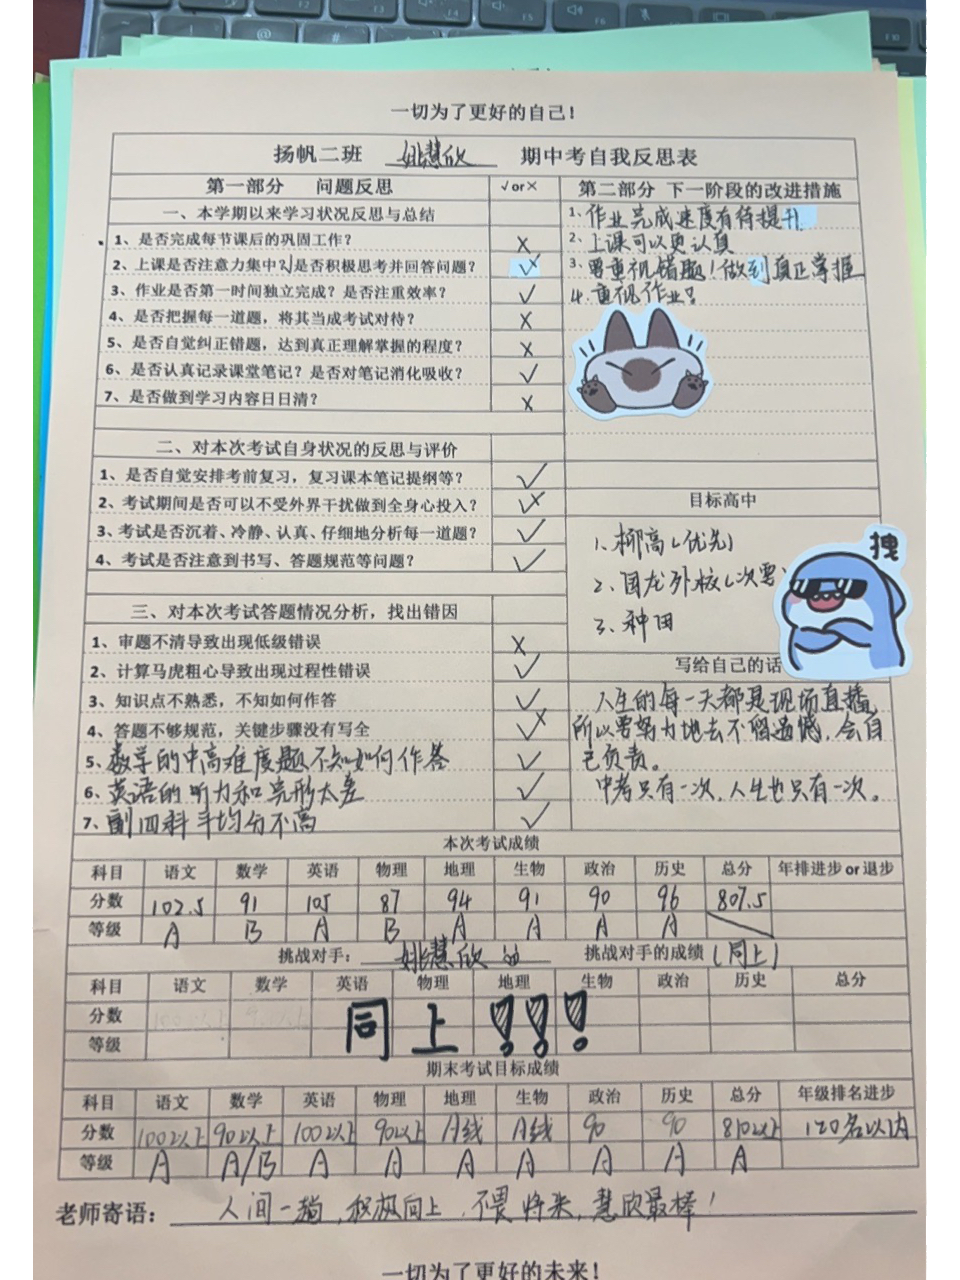 一切为了更好的自己！
扬帆二班 姚慧欣 期中考自我反思表
第一部分 问题反思 √or× 第二部分 下一阶段的改进措施
一、本学期以来学习状况反思与总结
1、是否完成每节课后的巩固工作？ ×
2、上课是否注意力集中？是否积极思考并回答问题？
3、作业是否第一时间独立完成？是否注重效率？ √
4、是否把握每一道题，将其当成考试对待？ ×
5、是否自觉纠正错题，达到真正理解掌握的程度？ ×
6、是否认真记录课堂笔记？是否对笔记消化吸收？ √
7、是否做到学习内容日日清？ ×
1、作业完成速度有待提升
2、上课可以更认真
3、要重视错题！做到真正掌握
4、重视作业？
二、对本次考试自身状况的反思与评价
1、是否自觉安排考前复习，复习课本笔记提纲等？ √
2、考试期间是否可以不受外界干扰做到全身心投入？ √×
3、考试是否沉着、冷静、认真、仔细地分析每一道题？ √
4、考试是否注意到书写、答题规范等问题？ √
目标高中
1、柳高（优先）
2、国龙外校（次要
3、种田
拽
三、对本次考试答题情况分析，找出错因
1、审题不清导致出现低级错误 ×
2、计算马虎粗心导致出现过程性错误 √
3、知识点不熟悉，不知如何作答 √
4、答题不够规范，关键步骤没有写全 √×
5、数学的中高难度题不知如何作答 √
6、英语的听力和完形太差 √
7、副四科平均分不高 √
写给自己的话
人生的每一天都是现场直播
所以要努力地去不留遗憾，会自
己负责。
中考只有一次，人生也只有一次。
本次考试成绩
科目 语文 数学 英语 物理 地理 生物 政治 历史 总分 年排进步or退步
分数 102.5 91 105 87 94 91 90 96 807.5
等级 A B A B A A A A
挑战对手： 姚慧欣 挑战对手的成绩（同上）
科目 语文 数学 英语 物理 地理 生物 政治 历史 总分
分数 100以上 90以上
等级
同上！！！
期末考试目标成绩
科目 语文 数学 英语 物理 地理 生物 政治 历史 总分 年级排名进步
分数 100以上 90以上 100以上 90以上 A线 A线 90 90 810以上 120名以内
等级 A A/B A A A A A A A
老师寄语： 人间一趟，积极向上，不畏将来，慧欣最棒！
一切为了更好的未来！